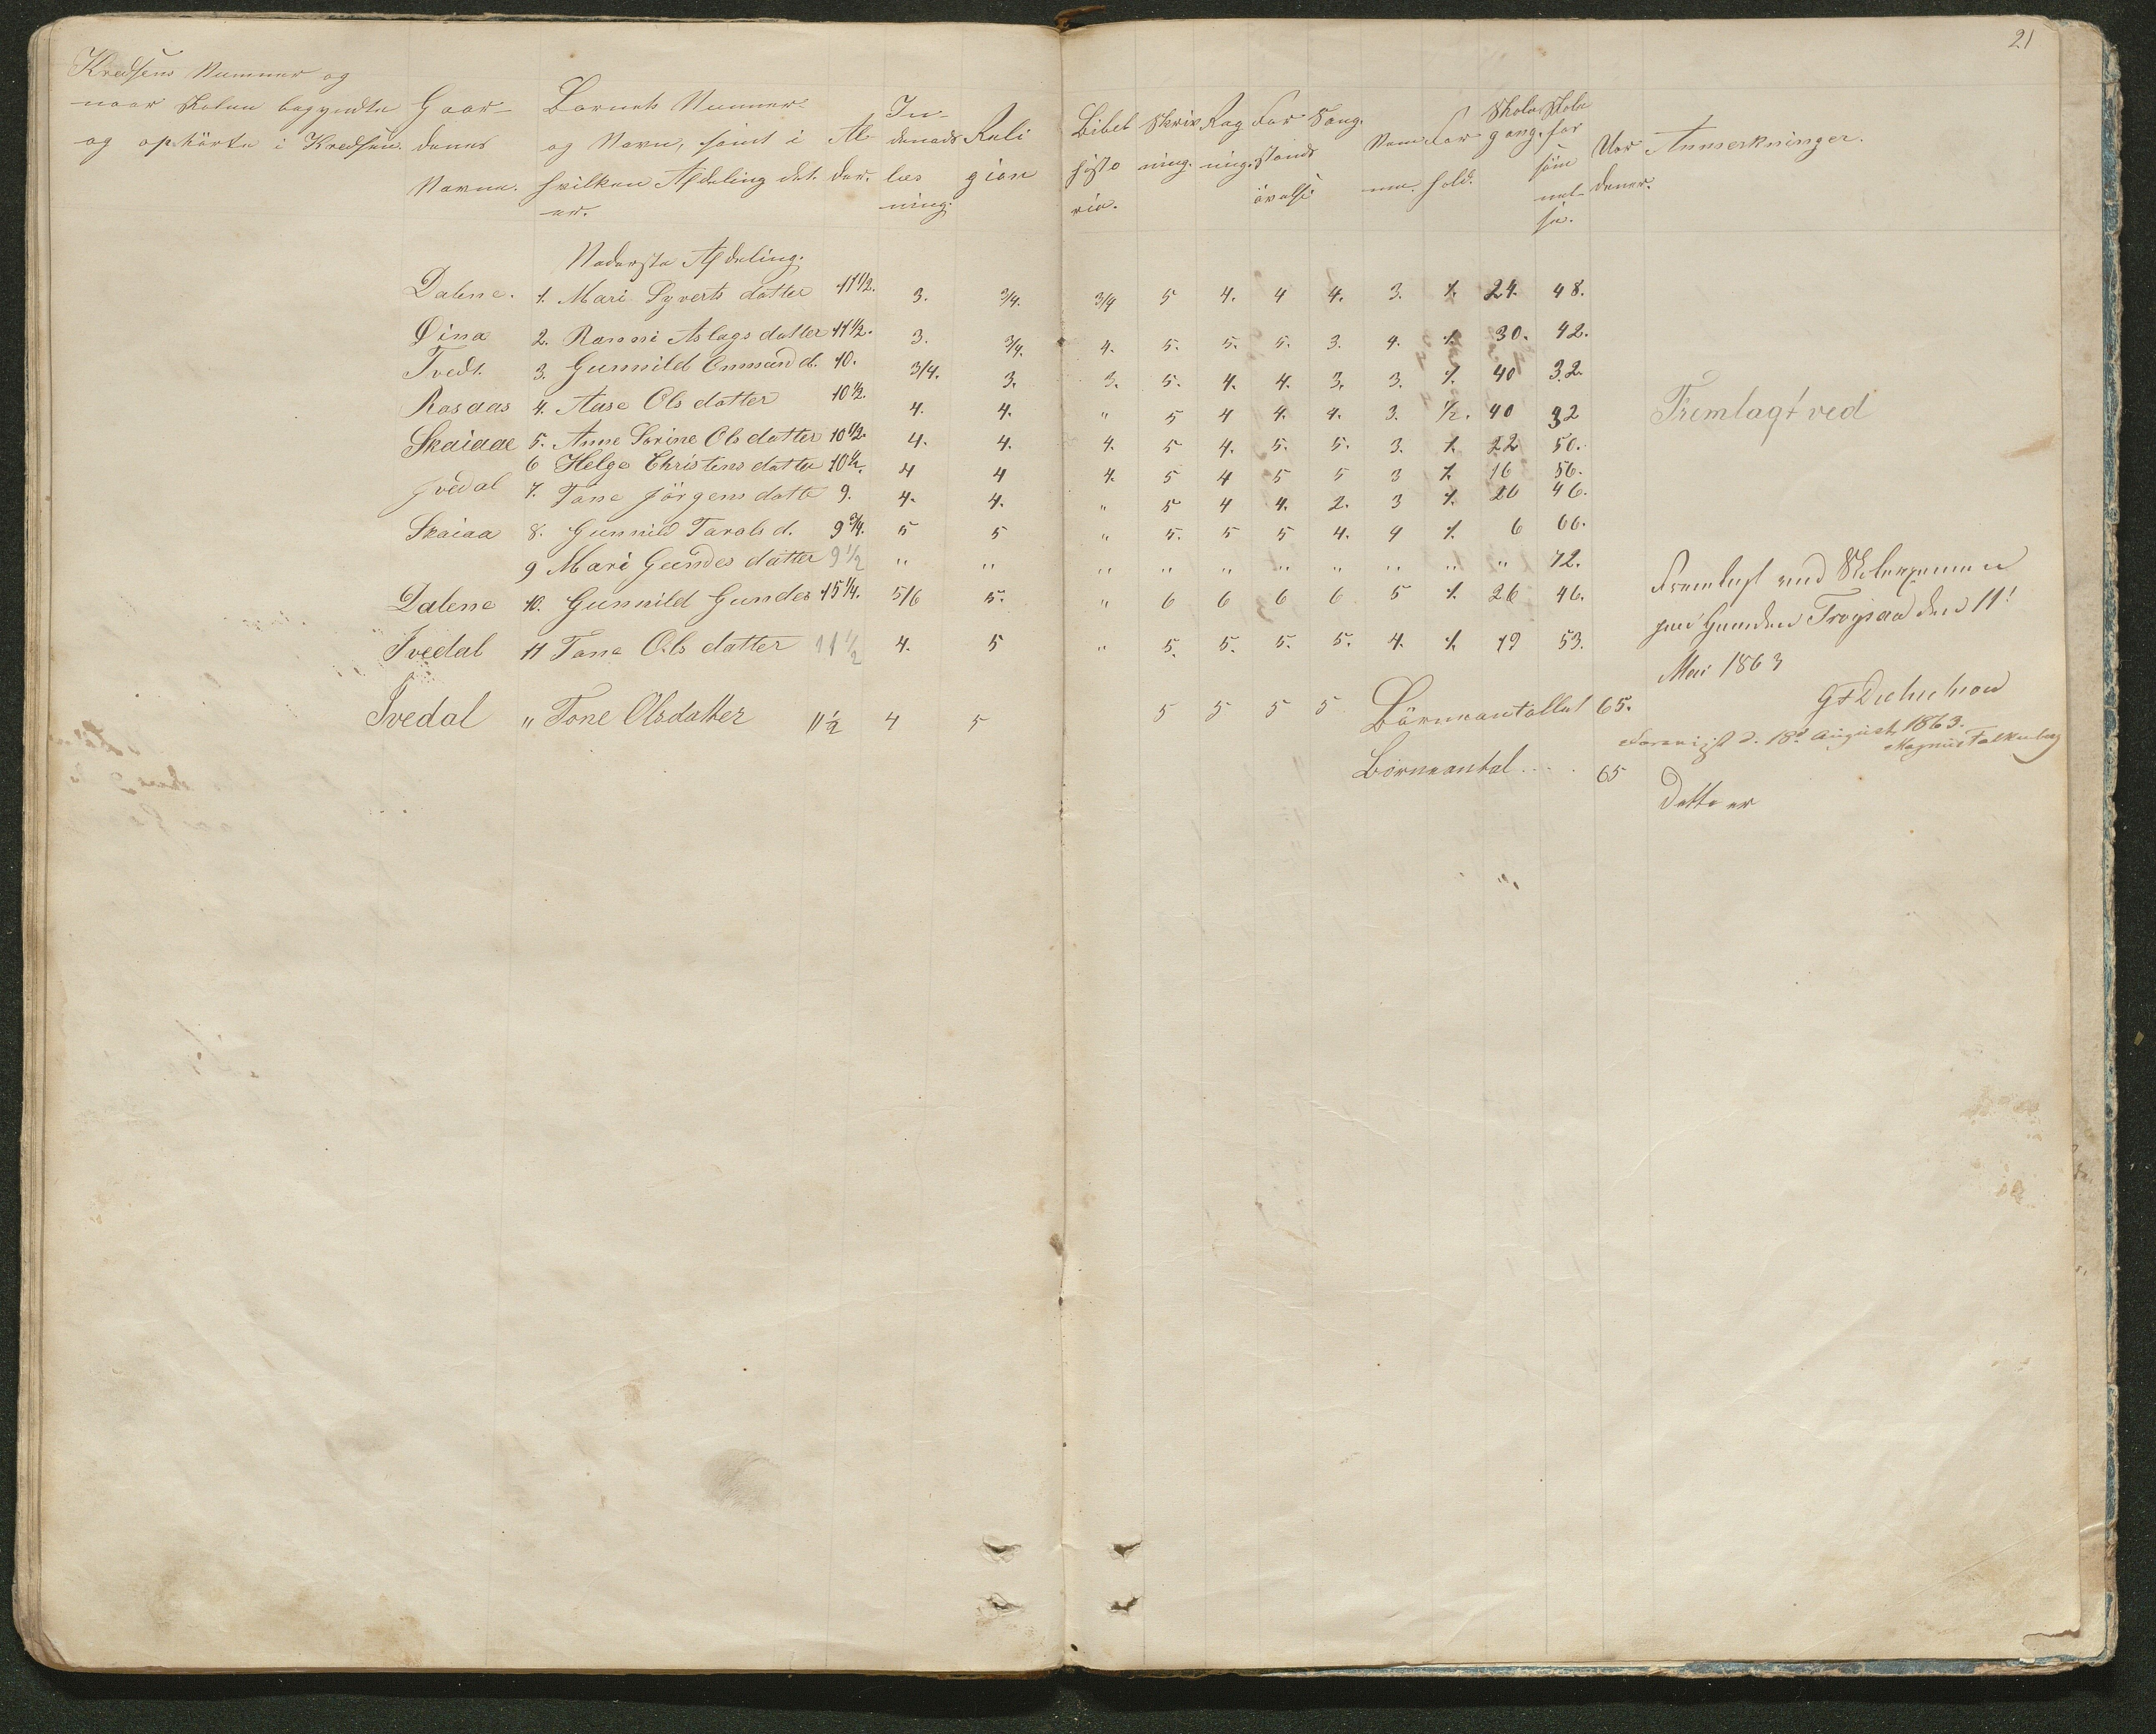 21
Kredsens Nummer og
naar Skolen begyndte
og ophörte i Kredsen.
Gaar-
denes
Navne.
Barnets Nummer
og Navn, samt i
hvilken Afdeling det
er.
Al-
der.
In-
denads
læs
ning.
Reli
gion
Bibel
histo
rie.
Skriv
ning.
Reg
ning.
For
stands
övelse
Sang.
Nem
me.
For
hold.
Skole
gang.
Skole
for
söm
mel-
se.
Vor
dener.
Anmerkninger.
Nederste Afdeling.
Dalene. 1. Mari Syverts datter 11 1/2. 3. 3/4. 3/4 5 4. 4 4. 3. 1. 24. 48.
Öina 2. Ranni Aslags datter 11 1/2. 3. 3/4. 4. 5. 5. 5. 3. 4. 1. 30. 42.
Tvedt. 3. Gunnild Emmund d. 10. 3/4. 3. 3. 5. 4. 4. 3. 3. 1. 40 32.
Rosaas 4. Aase Ols datter 10 1/2. 4. 4. " 5 4 4. 4. 3. 1/2. 40 32
Skaiaae 5. Anne Sorine Ols datter 10 1/2. 4. 4. 4. 5 4. 5. 5. 3. 1. 22 50.
6 Helge Christens datter 10 1/2. 4 4 4. 5 4 5 5 3 1. 16 56.
Ivedal 7. Tone Jörgens datt 9. 4. 4. " 5 4 4. 2. 3 1. 26 46.
Skaiaa 8. Gunnild Tarals d. 9 3/4. 5 5 " 5. 5 5 4. 4 1. 6 66.
9 Mari Gundes datter 9 1/2 " " " " " " " " " " 72.
Dalene 10. Gunnild Gundes 15 1/4. 5/6 5. " 6 6 6 6 5 1. 26 46.
Ivedal 11 Tone Ols datter 11 1/2 4. 5 " 5. 5. 5. 5. 4. 1. 19 53.
Ivedal " Tone Olsdatter 11 1/2 4 5 5 5 5 5
Börneantallet 65.
Börneantal .... 65
Fremlagt ved
Fremlagt ved Skolexamen
paa Gaarden Troysaa den 11.
Mai 1863
Forevist d. 18d August 1863.
Magnus Falkenberg
Dette er